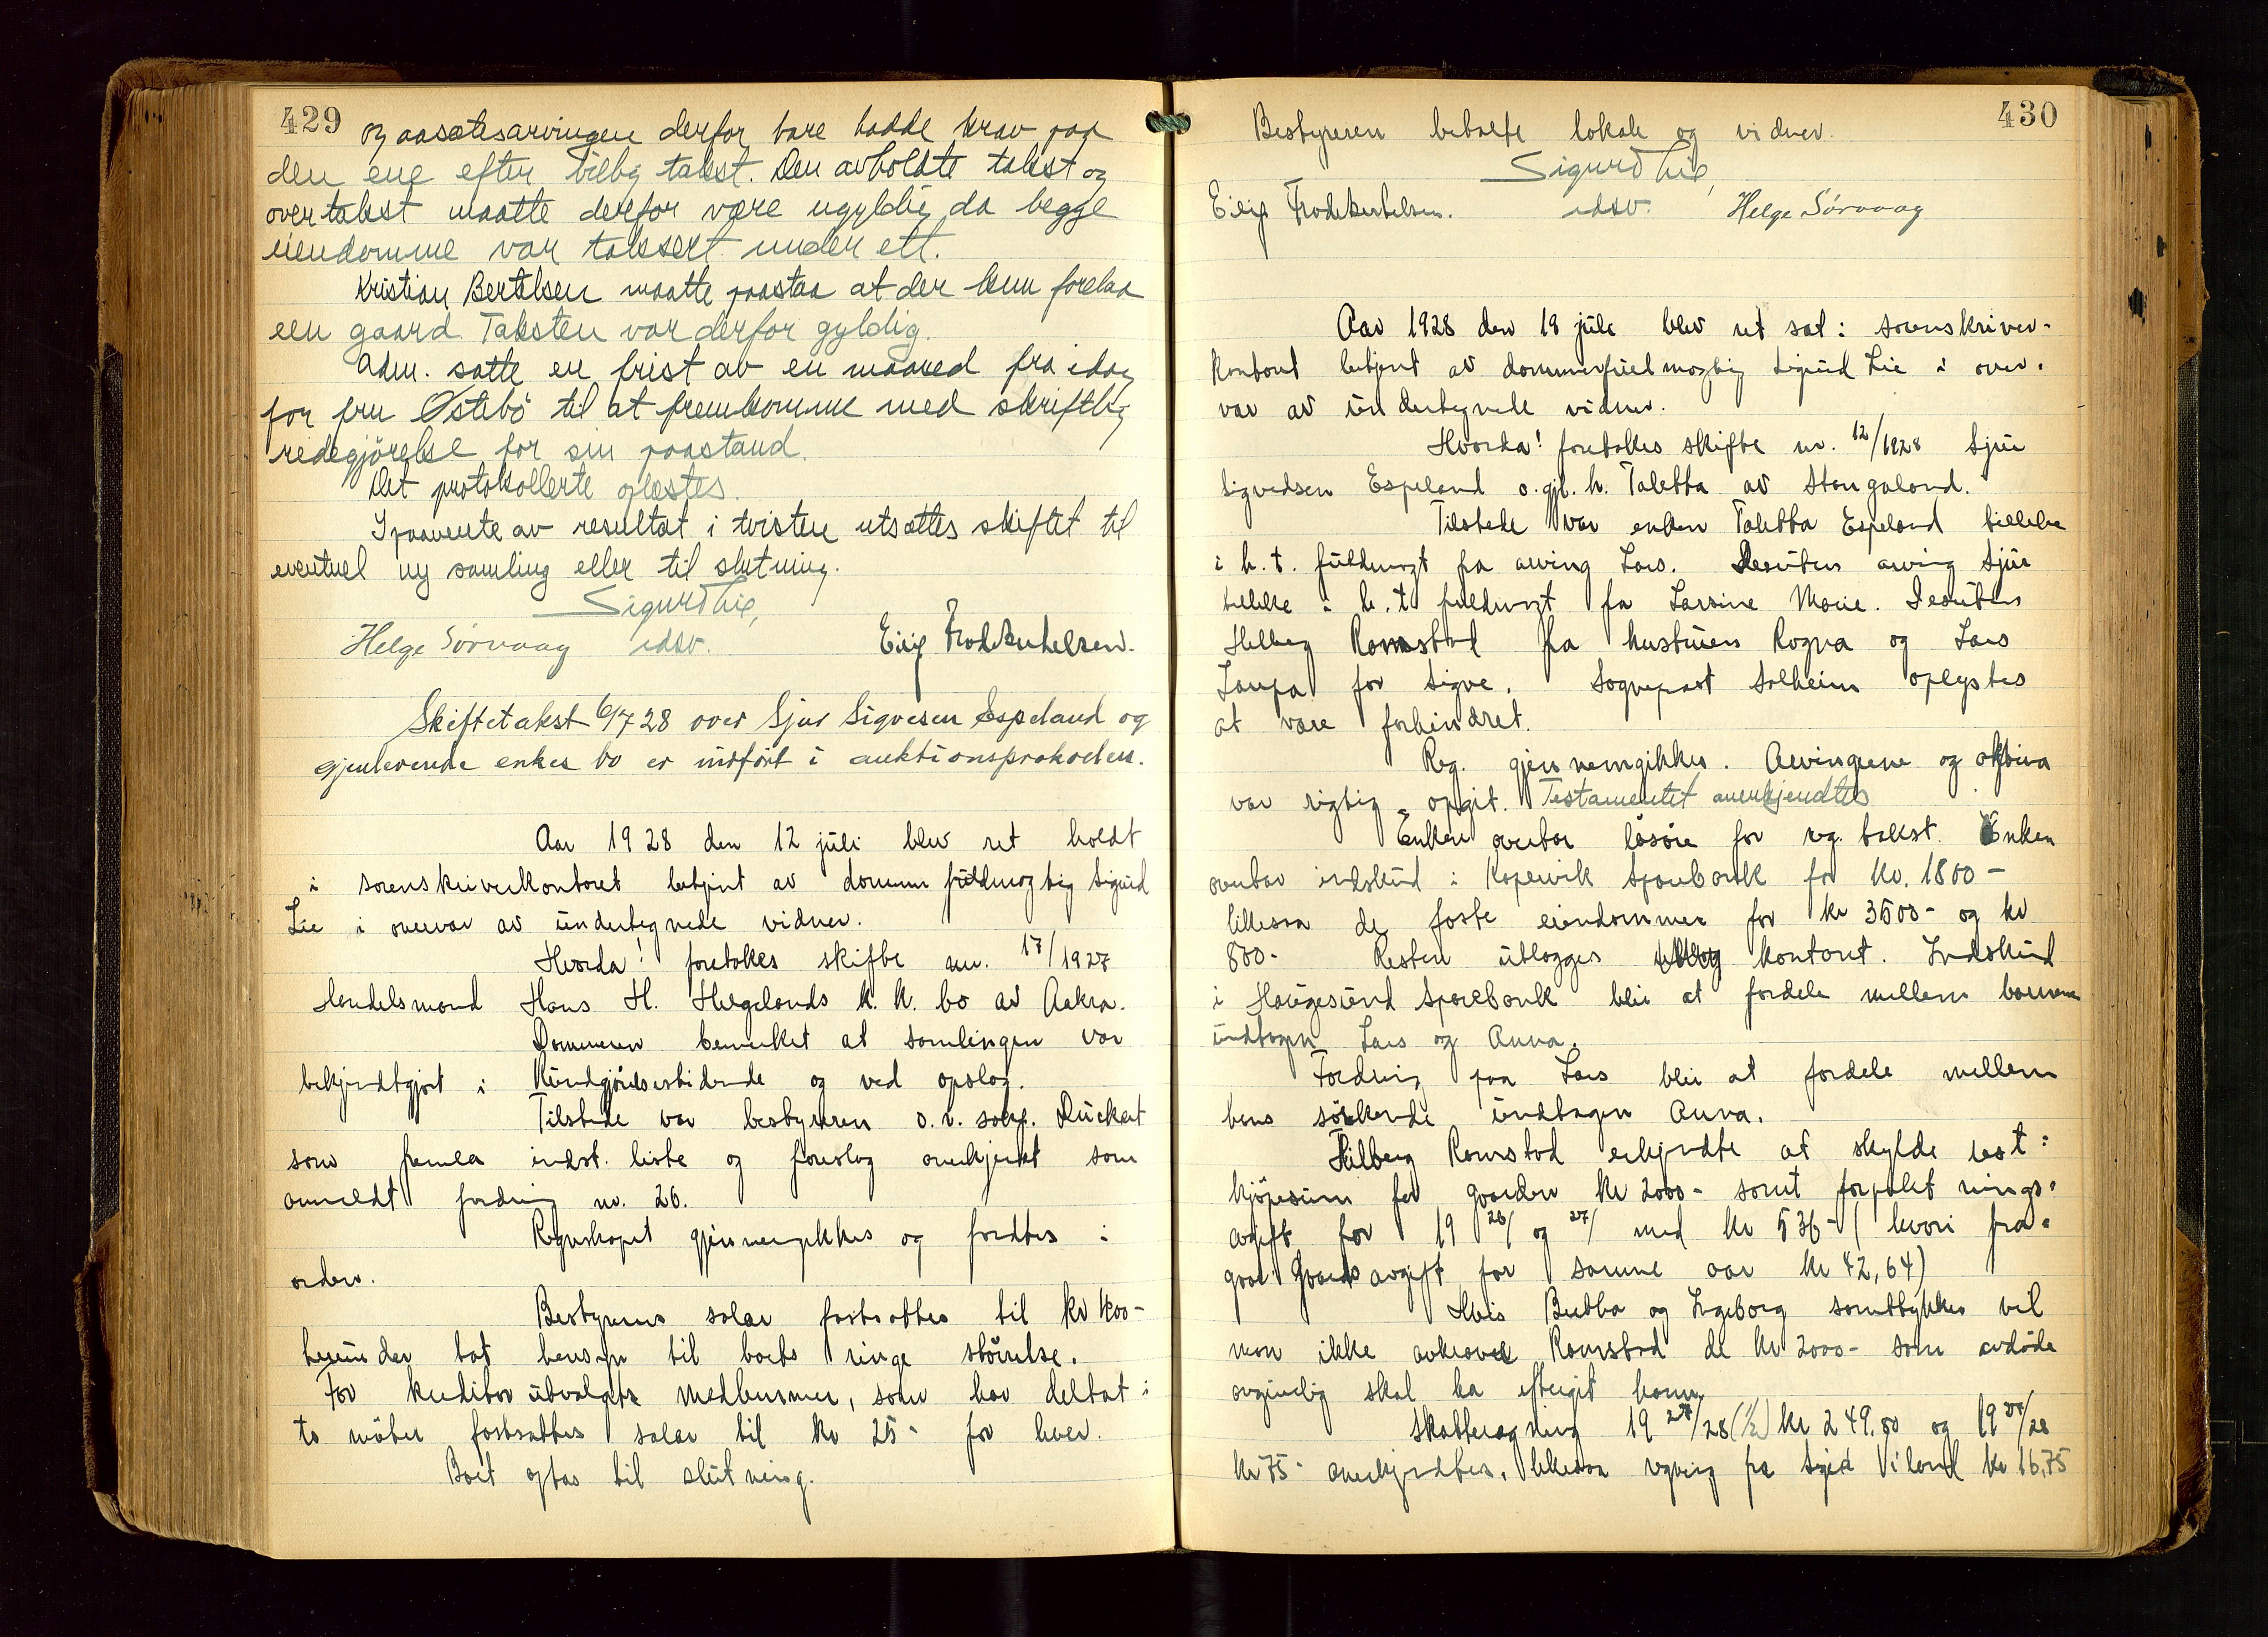 429
og aasætesarvingen derfor bare hadde krav paa
den ene efter billig takst. Den avholdte takst og
overtakst maatte derfor være ugyldig da begge
eiendomme var taksert under ett.
Kristian Bertelsen maatte paastaa at der kun forelaa
een gaard. Taksten var derfor gyldig.
Adm. satte en frist av en maaned fra idag
for fru Østebö til at fremkomme med skriftlig
redegjörelse for sin paastand.
Det protokollerte oplæstes.
I paavente av resultat i tvisten utsættes skiftet til
eventuel ny samling eller til slutning.
Sigurd Lie,
edsv.
Helge Sörvaag
Skiftetakst 6/7 28 over Sjur Sigvesen Espeland og
gjenlevende enkes bo er indfört i auktionsprotokollen.
Aar 1928 den 12 juli blev ret holdt
i sorenskriverkontoret betjent av dommerfuldmægtig Sigurd
Lie i overvær av undertegnede vidner.
Hvorda! foretokes skifte nr. 17/1927
Handelsmand Hans H. Helgelands k. k. bo av Aakra.
Dommeren bemerket at samlingen var
bekjendtgjort i Kundgjörelsestidende og ved opslag.
Tilstede var bestyreren o.r. sakf. Rückert
som fremla indst. liste og foreslog anerkjendt som
anmeldt fordring nr. 26.
Regnskapet gjennemgikkes og fandtes i
orden.
Bestyrerens salær fastsattes til kr 400-
herunder tat hensyn til boets ringe störrelse.
For kreditorutvalgets medlemmer, som har deltat i
to möter fastsattes salær til kr 25- for hver.
Boet optas til slutning.
430
Bestyreren betalte lokale og vidner.
Sigurd Lie,
edsv.
Helge Sörvaag
Aar 1928 den 18 juli blev ret sat i sorenskriver-
kontoret betjent av dommerfuldmægtig Sigurd Lie i over-
vær av undertegnede vidner.
Hvorda! foretokes skifte nr. 12/1928 Sjur
Sigvedsen Espeland o. gjl. h. Taletta av Stangaland.
Tilstede var enken Taletta Espeland tillike
i h. t. fuldmagt fra arving Lars. Desuten arving Sjur
tillike i h. t. fuldmagt fra Larsine Marie. Desuten
Helberg Ramstad fra hustruen Ragna og Lars
for Sigve. Sogneprest Solheim oplystes
at være forhindret.
Reg. gjennemgikkes. Arvingene og aktiva
var rigtig opgit. Testamentet anerkjendtes
Enken overtar lösöre for reg. takst. Enken
overtar indskud i Kopervik Sparebank for kr. 1800-
likesaa de faste eiendommer for kr 3500- og kr
800- Resten utlægges kontant. Indskud
i Haugesund Sparebank blir at fordele mellem barnene
undtagen Lars og Anna.
Fordring paa Lars blir at fordele mellem
hans söskende undtagen Anna.
Hilberg Ramstad erkjendte at skylde rest
kjöpesum for gaarden kr 2000- samt forpaktnings-
avgift for 19 26/ og 27/ med kr 536- (hvori fra-
gaar Gaardsavgift for samme aar kr 42,64)
Hvis Betta og Ingeborg samtykker vil
man ikke avkræve Ramstad de kr 2000- som avdöde
avgivelig skal ha eftergit ham.
Skatteregning 19 27/28 (1/2) kr 249,80 og 19 27/28
kr 75- anerkjendtes, likesaa regning fra Sigrid Viland kr 16,75